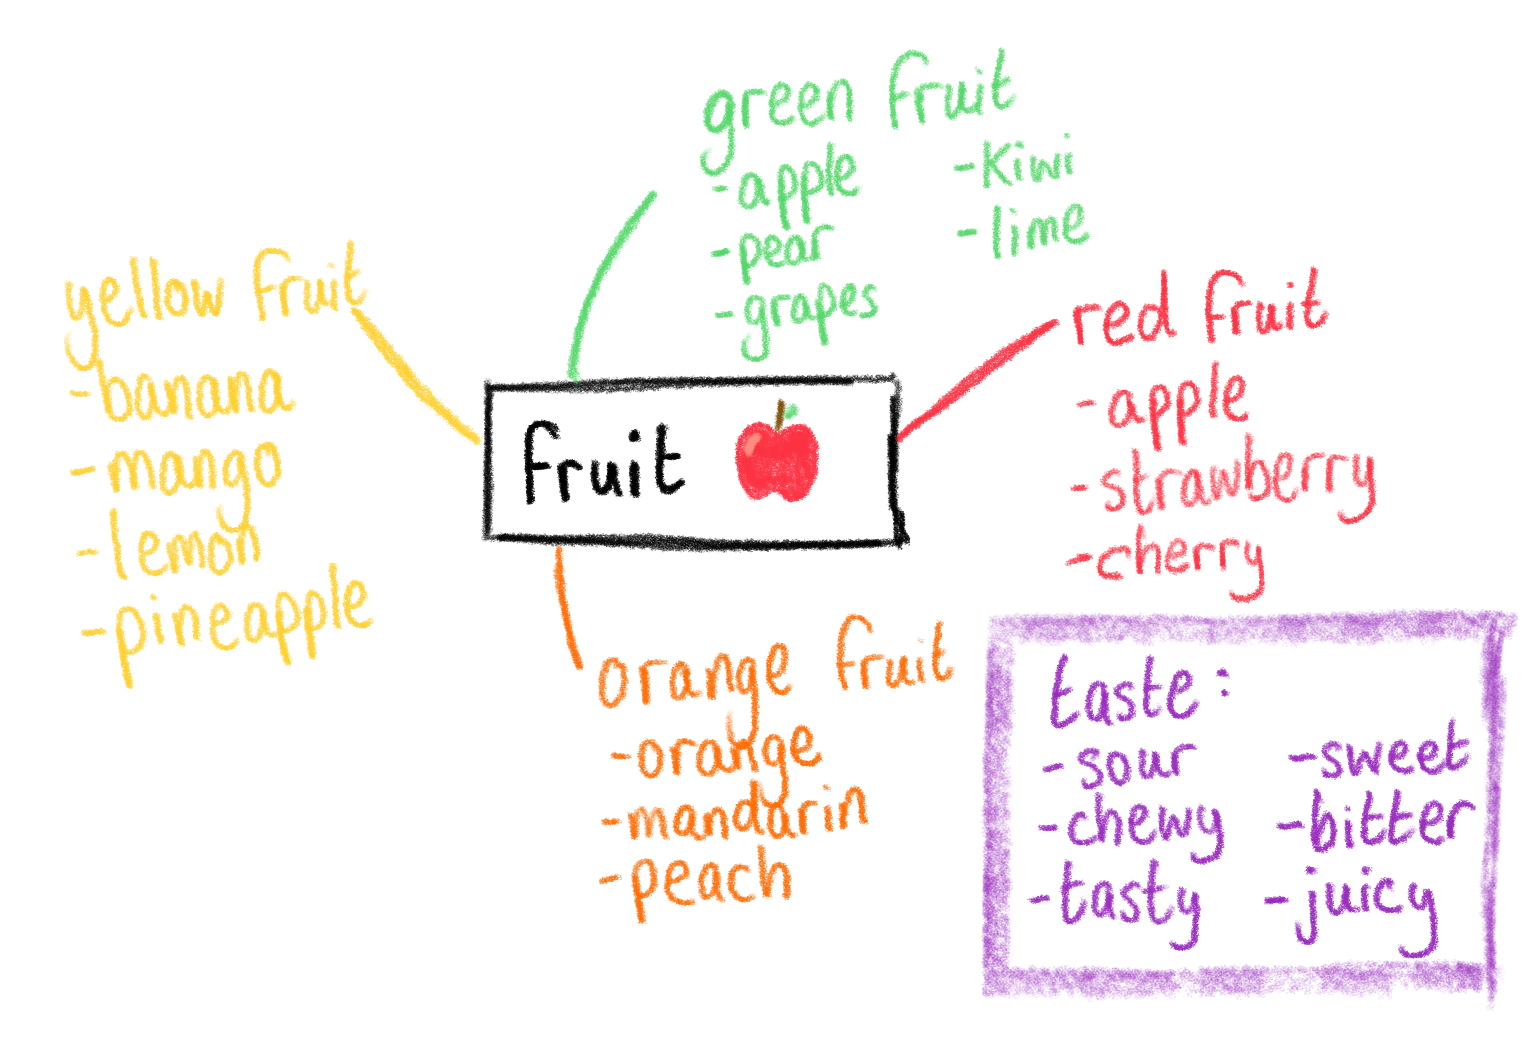 green fruit
-apple
-pear
-grapes
-kiwi
-lime
yellow fruit
-banana
-mango
-lemon
-pineapple
fruit
red fruit
-apple
-strawberry
-cherry
orange fruit
-orange
-mandarin
-peach
taste:
-sour
-chewy
-tasty
-sweet
-bitter
-juicy